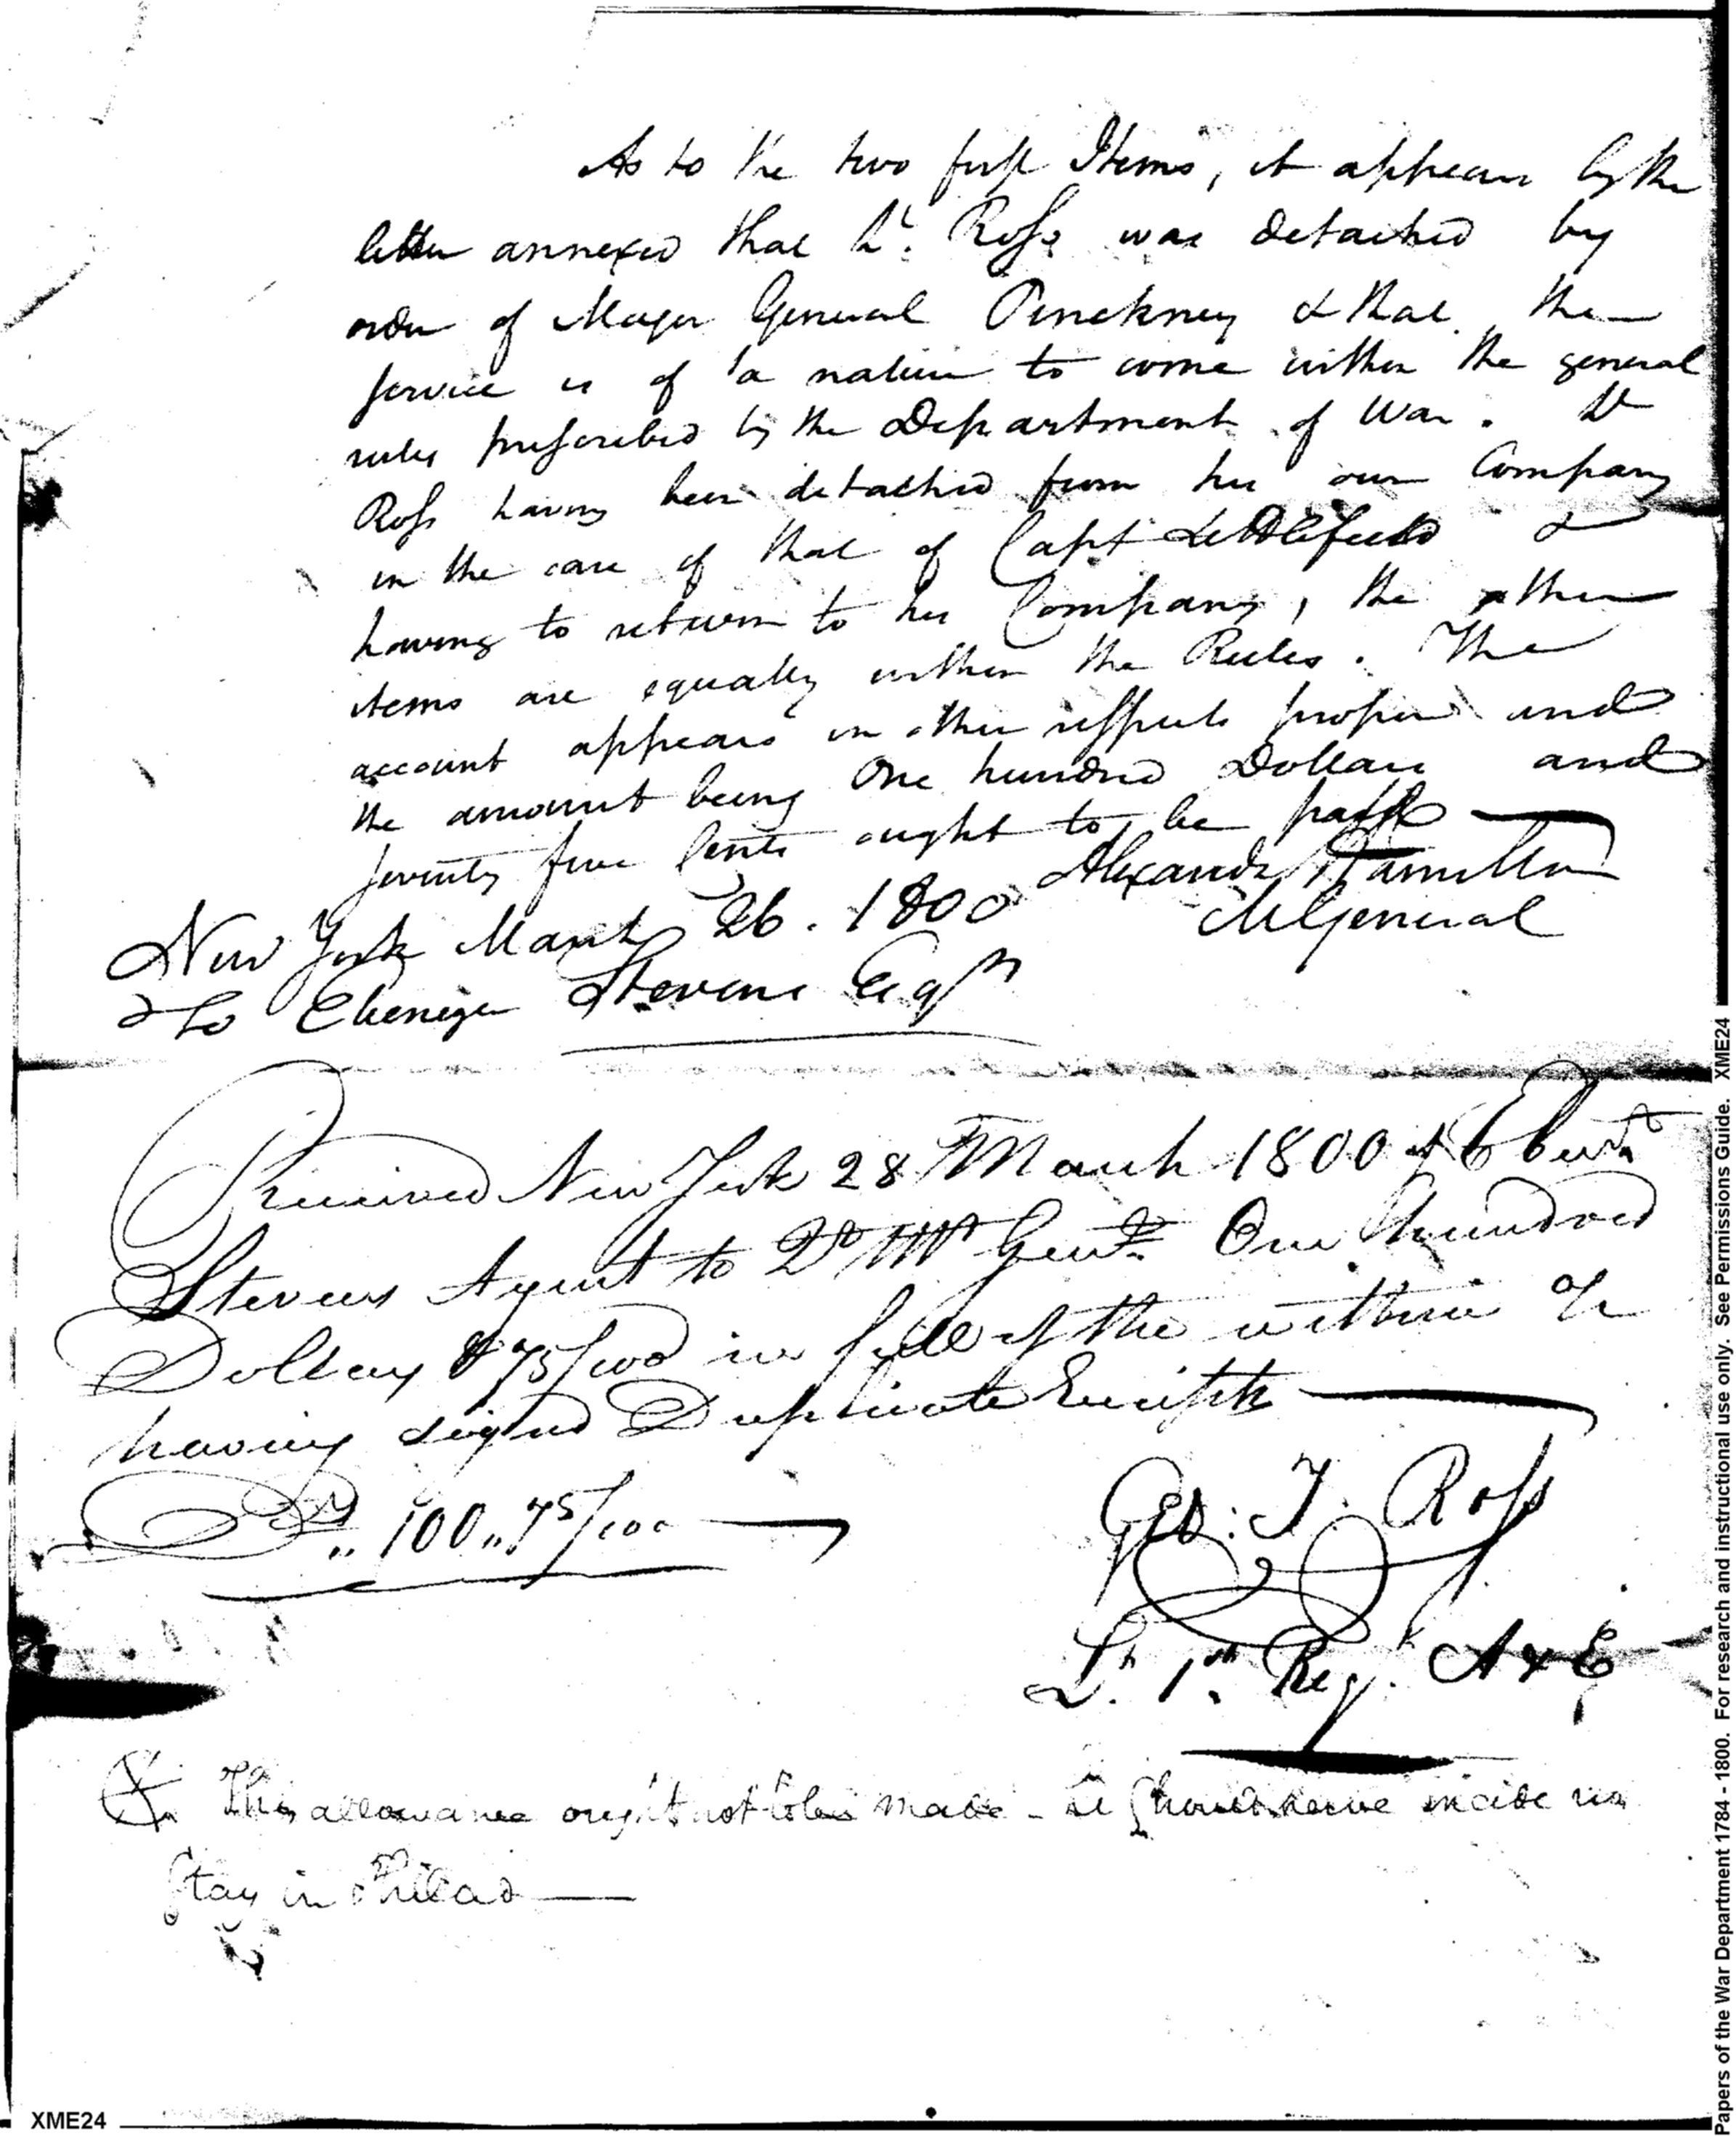 As to the two first Items, it appears by the
letter annexed that Lt. Ross was detached by
order of Major General Pinckney & that the
service is of a nature to come within the general
rules prescribed by the Department of War. Lt
Ross having been detached from his own Company
in the care of that of Capt Littlefield &
having to return to his Company, the other
items are equally within the Rules. The
account appears in other respects proper and
the amount being One hundred Dollars and
seventy five Cents ought to be paid
Alexander Hamilton
MGeneral
New York March 26. 1800
To Ebenezer Stevens Esqr
Received New York 28 March 1800 of Ebenr
Stevens Agent to Qr Mr Genl. One hundred
Dollars & 75/100 in full of the within
having signed Duplicate Receipts
Drs „ 100 „ 75/100
Geo: T. Ross
Lt. 1st. Regt. A & E
This allowance ought not to be made - he should have made no
stay in Philad
XME24
Papers of the War Department 1784 - 1800. For research and instructional use only. See Permissions Guide. XME24